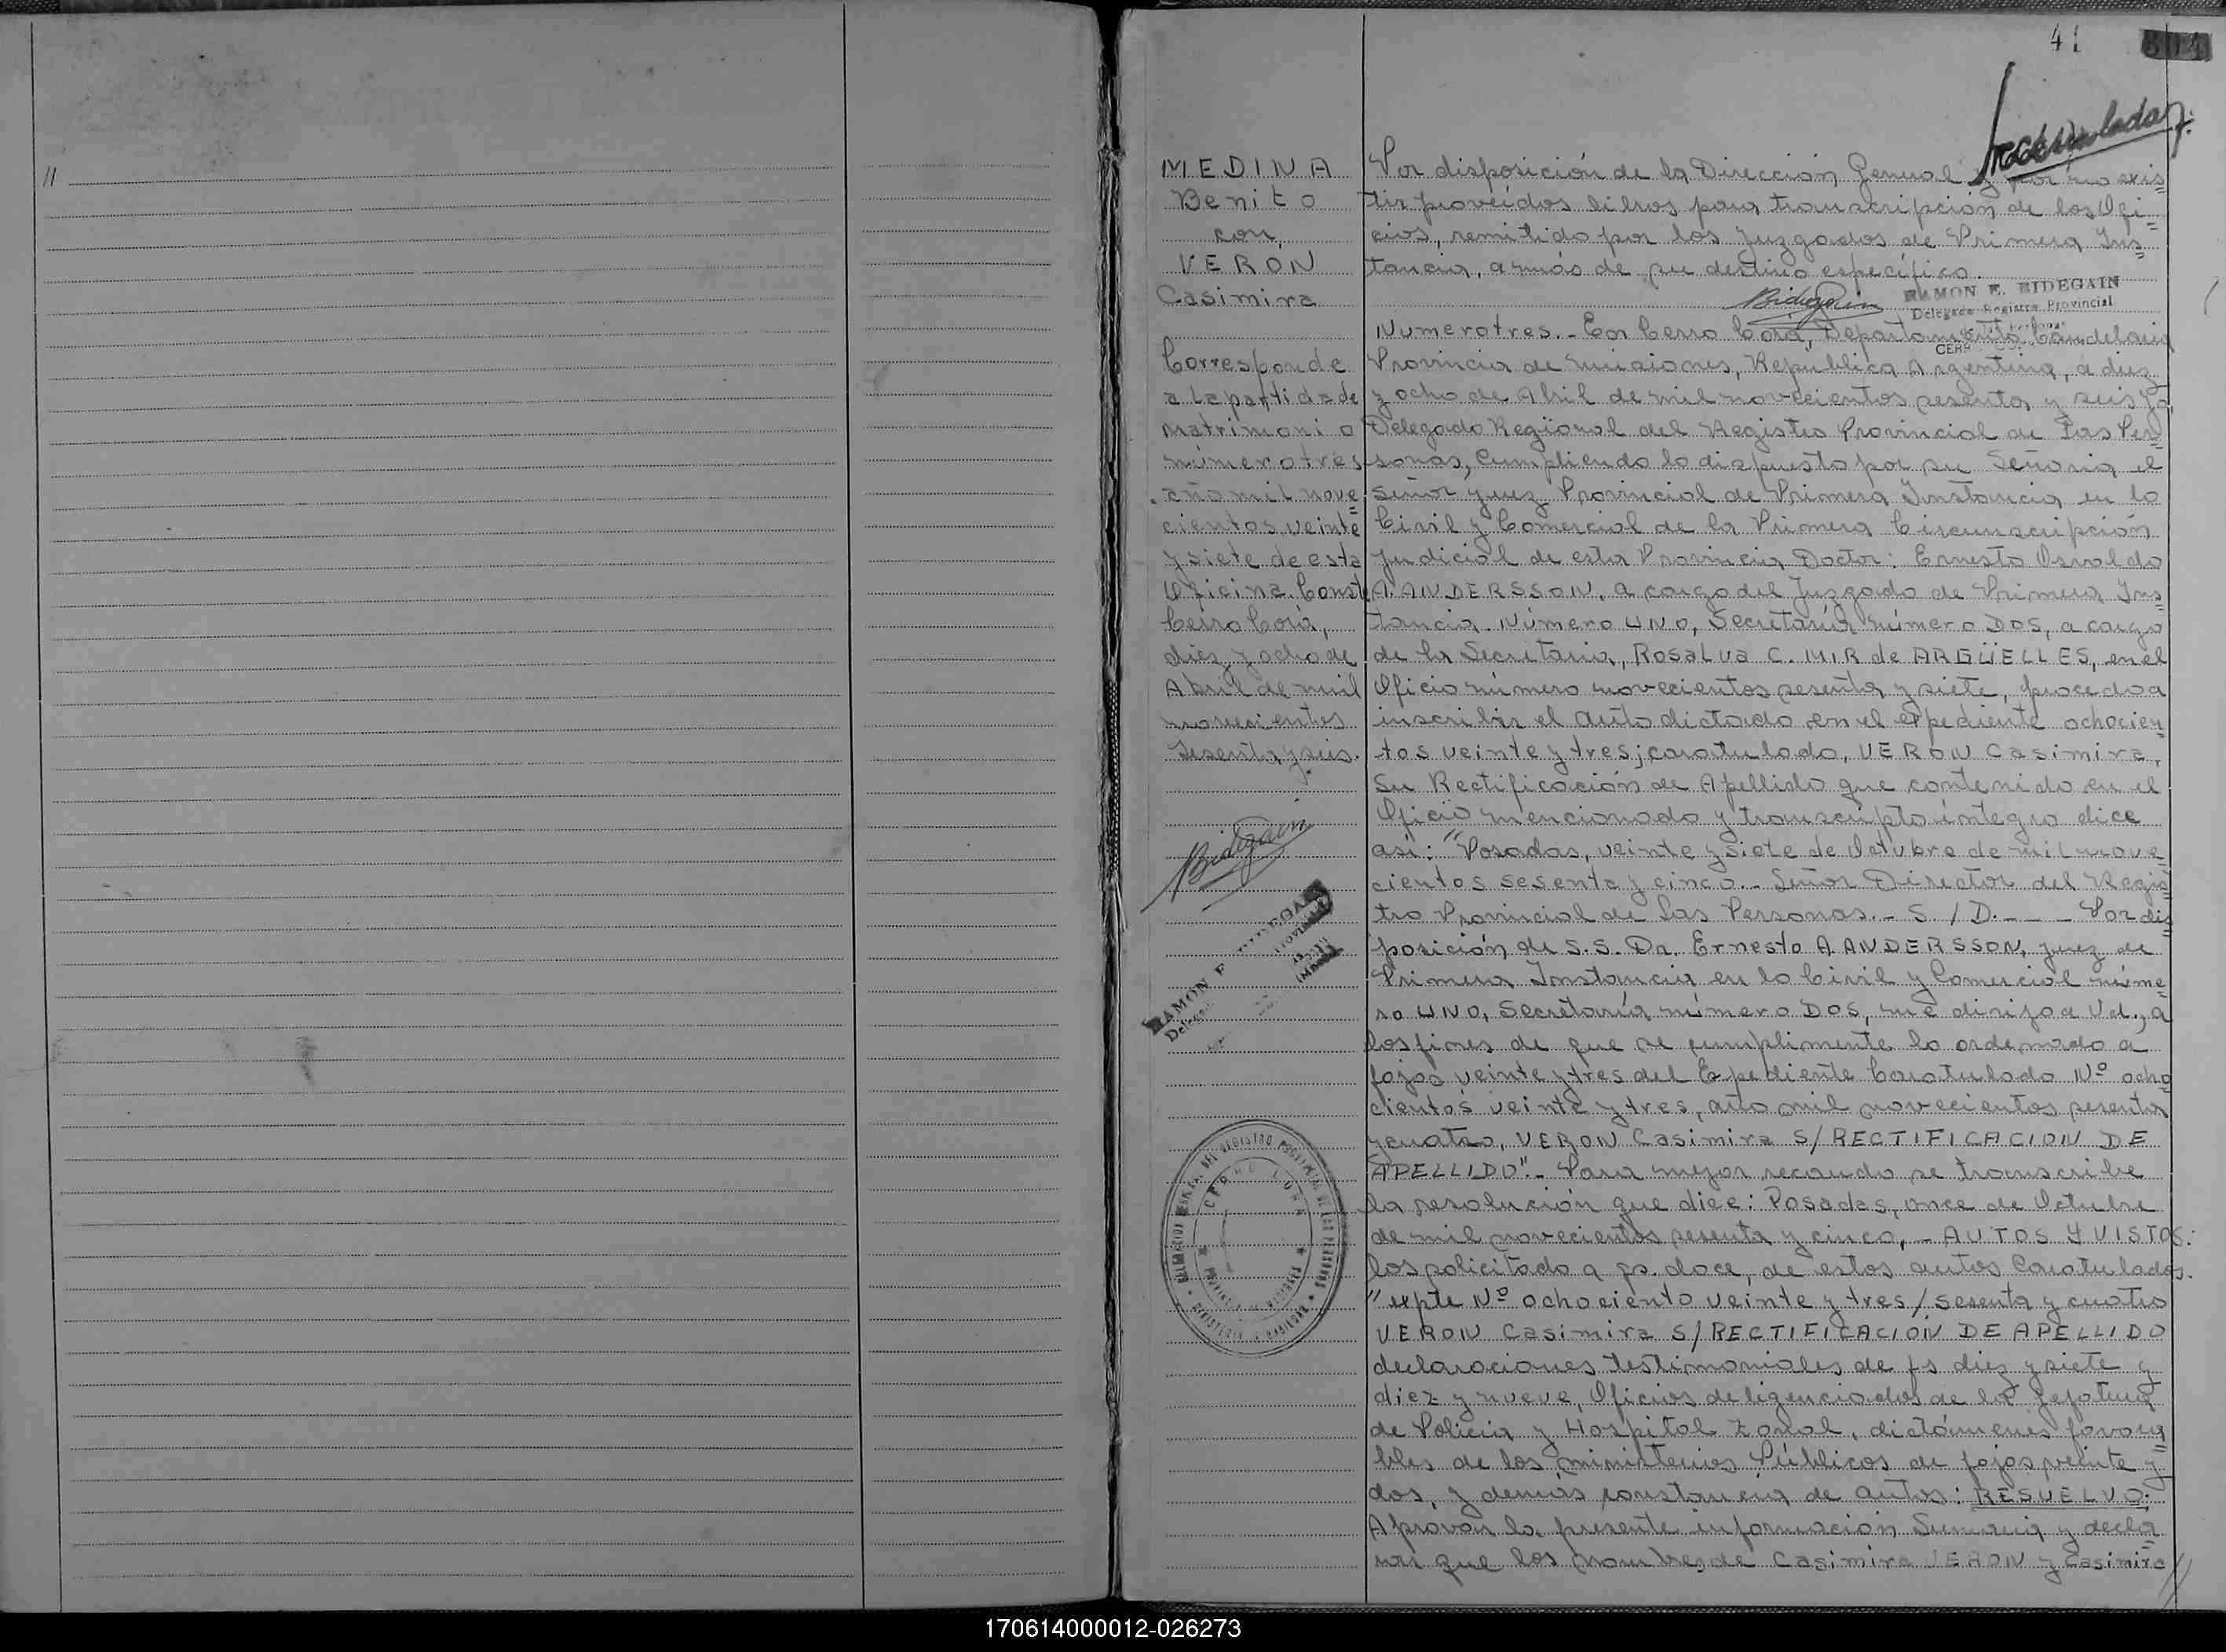 41
MEDINA
Benito
con,
VERON
Casimira
Corresponde
a la partida de
matrimonio
número tres
año mil nove=
cientos veinte
y siete de esta
Oficina. Const
Cerro Corá,
diez y ocho de
Abril de mil
novecientos
sesenta y seis.
Bidegain
RAMON E. BIDEGAIN
CERRO CORA
Por disposición de la Dirección General y por no exis=
tir proveídos libros para transcripción de los Ofi=
cios, remitido por los Juzgados de Primera Ins=
tancia, a más de su destino específico.
Bidegain
RAMON E. BIDEGAIN
Delegado Registro Provincial
Numero tres.- En Cerro Corá, Departamento Candelaria
Provincia de Misiones, República Argentina, a diez
y ocho de Abril de mil novecientos sesenta y seis Yo
Delegado Regional del Registro Provincial de Las Per=
sonas, Cumpliendo lo dispuesto por su Señoria el
Señor Juez Provincial de Primera Instancia en lo
Civil y Comercial de la Primera Circunscripción
Judicial de esta Provincia Doctor: Ernesto Osvaldo
A. ANDERSSON, a cargo del Juzgado de Primera Ins=
tancia. Número UNO, Secretaría número DOS, a cargo
de la Secretaria, Rosalva C. MIR de ARGÜELLES, en el
Oficio número novecientos sesenta y siete, procedo a
inscribir el auto dictado en el expediente ochocien=
tos veinte y tres; caratulado, VERON Casimira,
Su Rectificación de Apellido que contenido en el
Oficio mencionado y transcripto íntegro dice
así: "Posadas, veinte y siete de Octubre de mil nove=
cientos sesenta y cinco.- Señor Director del Regis=
tro Provincial de Las Personas.- S. / D. - - - Por dis=
posición de S.S. Dr. Ernesto A. ANDERSSON, Juez de
Primera Instancia en lo Civil y Comercial núme=
ro UNO, Secretaría número DOS, me dirijo a Ud., a
los fines de que se cumplimente lo ordenado a
fojas veinte y tres del Expediente Caratulado Nº ocho=
cientos veinte y tres, año mil novecientos sesenta
y cuatro, VERON Casimira S/RECTIFICACION DE
APELLIDO".- Para mejor recaudo se transcribe
la resolución que dice: Posadas, once de Octubre
de mil novecientos sesenta y cinco,- AUTOS Y VISTOS:
lo solicitado a fs. doce, de estos autos Caratulados.
"expte Nº ochociento veinte y tres/sesenta y cuatro
VERON Casimira S/RECTIFICACION DE APELLIDO
declaraciones testimoniales de fs diez y siete y
diez y nueve, Oficios deligenciados de la Jefatura
de Policia y Hospital Zonal, dictámenes favora=
bles de los ministerios Públicos de fojas veinte y
dos, y demás constancia de autos: RESUELVO:
Aprovar la presente información Sumaria y decla=
rar que los nombres de Casimira VERON y Casimira //
170614000012-026273